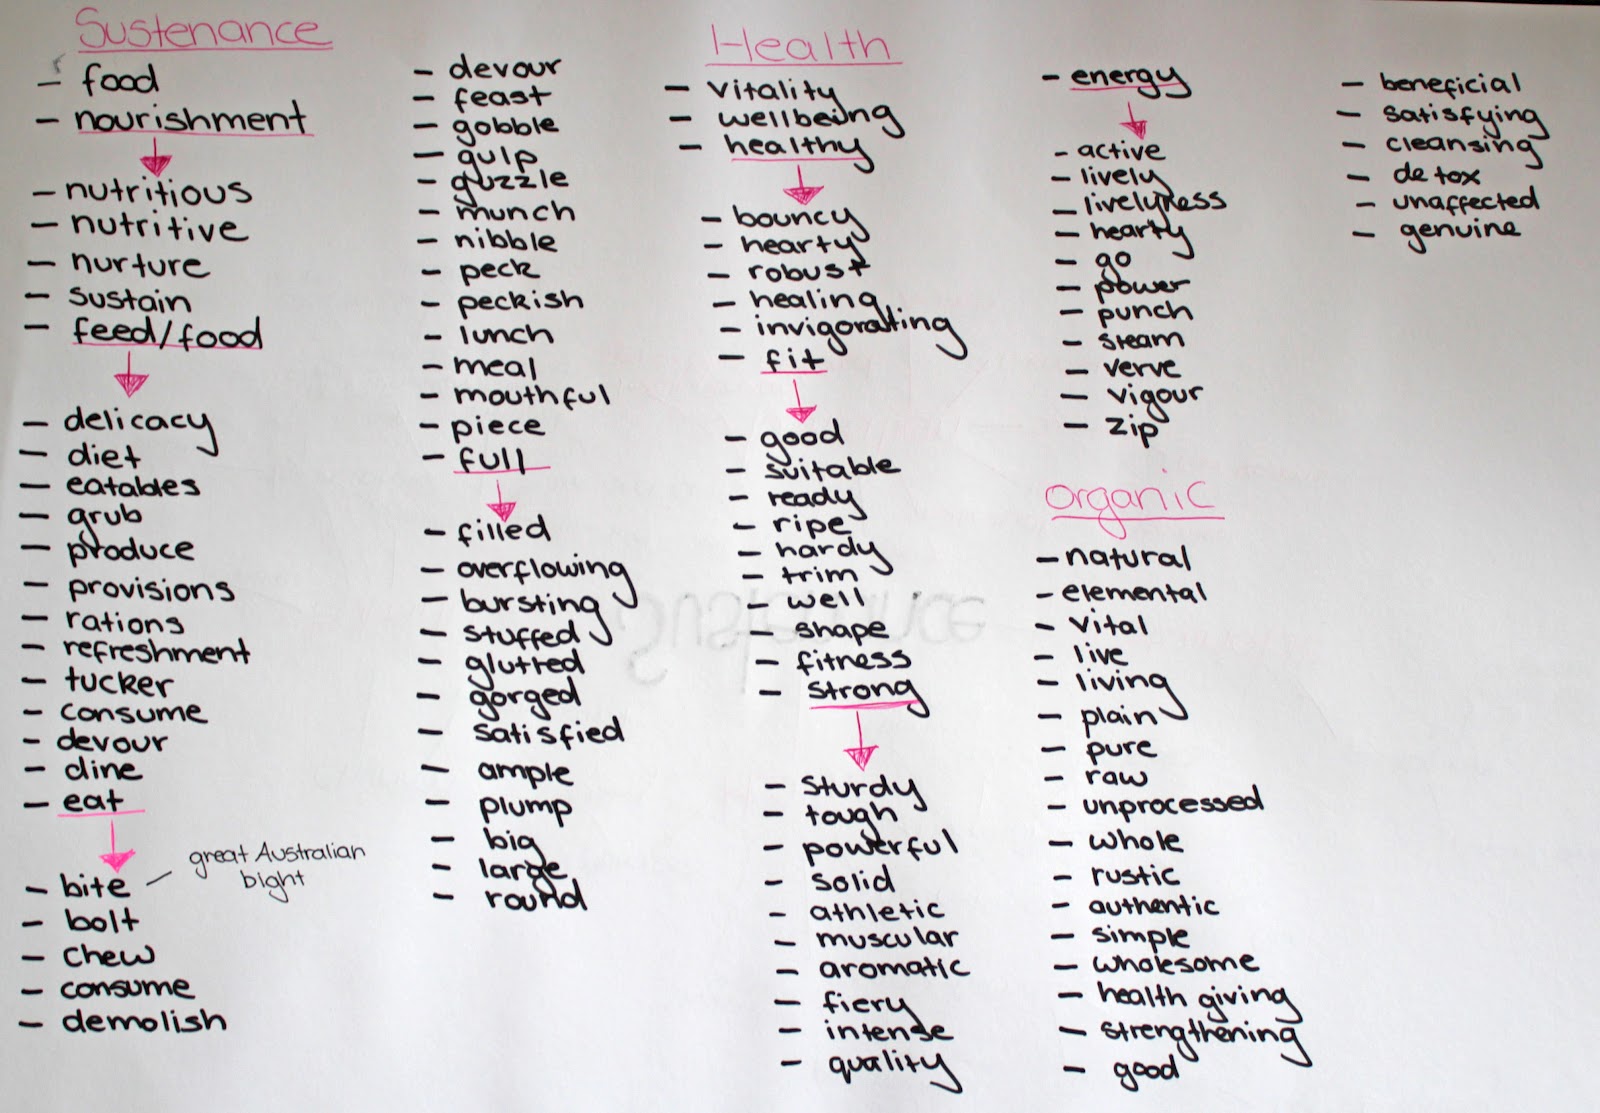 Sustenance
- food
- nourishment
- nutritious
- nutritive
- nurture
- sustain
- feed/food
- delicacy
- diet
- eatables
- grub
- produce
- provisions
- rations
- refreshment
- tucker
- consume
- devour
- dine
- eat
- bite - great Australian
bight
- bolt
- chew
- consume
- demolish
- devour
- feast
- gobble
- gulp
- guzzle
- munch
- nibble
- peck
- peckish
- lunch
- meal
- mouthful
- piece
- full
- filled
- overflowing
- bursting
- stuffed
- glutted
- gorged
- satisfied
- ample
- plump
- big
- large
- round
Health
- vitality
- wellbeing
- healthy
- bouncy
- hearty
- robust
- healing
- invigorating
- fit
- good
- suitable
- ready
- ripe
- hardy
- trim
- well
- shape
- fitness
- strong
- sturdy
- tough
- powerful
- solid
- athletic
- muscular
- aromatic
- fiery
- intense
- quality
- energy
- active
- lively
- livelyness
- hearty
- go
- power
- punch
- steam
- verve
- vigour
- zip
organic
- natural
- elemental
- vital
- live
- living
- plain
- pure
- raw
- unprocessed
- whole
- rustic
- authentic
- simple
- wholesome
- health giving
- strengthening
- good
- beneficial
- satisfying
- cleansing
- detox
- unaffected
- genuine
Sustenance